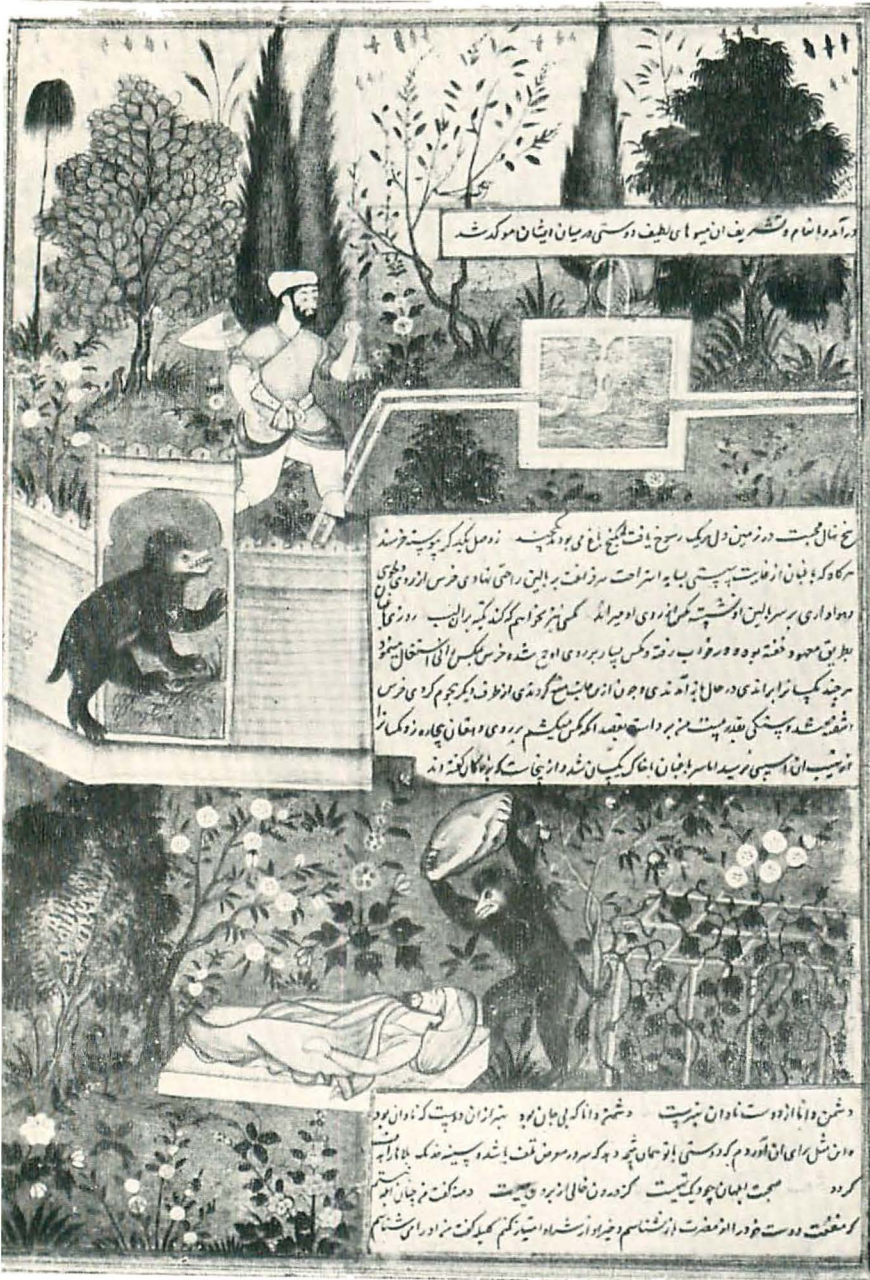 درآمد و بانعام و تشریف ان میوهای لطیف دوستی درمیان ایشان موکد شد
بیخ نهال محبت در زمین دل هریک رسوخ یافت بکنج باغ می بودند ز وصل یکدیگر پیوسته خرسند
هرگاه که باغبان از غایت سستی بسایه استراحت سر فراغت بر بالین راحتی نهادی خرس از روی
و هواداری بر سر بالین او نشسته مکس از روی او میراند مکسی نیز نخواهم که کند تکیه بران لب روزی باغبان
بطریق معهود خفته بود و در خواب رفته و مکس بسیار بر روی او جمع شده خرس بمکس رانی اشتغال مینمود
هر چند مکسانرا براندی در حال باز آمدندی و چون ازین جانب منع کردندی از طرف دیکر هجوم کردی خرس
اشفته شده سنکی بقدر بیست من برداشت بقصد انکه مکس میکشم بر روی دهقان بیچاره زد مکسانرا
از نهیب ان اسیبی نرسید اما سر باغبان با خاک یکسان شد و ازینجاست که بزرکان کفته اند
دشمن دانا از دوست نادان بهترست دشمن دانا که پی جان بود بهتر ازان دوست که نادان بود
و این مثل برای ان آوردم که دوستی با تو همان نتیجه دهد که سر در معرض تلف باشد و سینه هدف بلا
کردد صحبت ابلهان چو دیک تهیست کز درون خالی از برون سیهست دمنه کفت من چنان ابله نیستم
که منفعت دوست خود را از مضرت باز نشناسم و خیر او از شر او امتیاز نکنم کلیله کفت من می شناسم